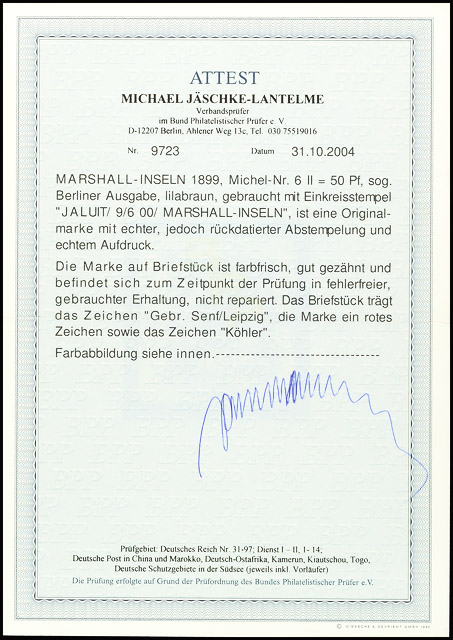 ATTEST
MICHAEL JÄSCHKE-LANTELME
Verbandsprüfer
im Bund Philatelistischer Prüfer e. V.
D-12207 Berlin, Ahlener Weg 13c, Tel. 030 75519016
Nr. 9723 Datum 31.10.2004
MARSHALL-INSELN 1899, Michel-Nr. 6 II = 50 Pf, sog.
Berliner Ausgabe, lilabraun, gebraucht mit Einkreisstempel
"JALUIT/ 9/6 00/ MARSHALL-INSELN", ist eine Original-
marke mit echter, jedoch rückdatierter Abstempelung und
echtem Aufdruck.
Die Marke auf Briefstück ist farbfrisch, gut gezähnt und
befindet sich zum Zeitpunkt der Prüfung in fehlerfreier,
gebrauchter Erhaltung, nicht repariert. Das Briefstück trägt
das Zeichen "Gebr. Senf/Leipzig", die Marke ein rotes
Zeichen sowie das Zeichen "Köhler".
Farbabbildung siehe innen.----------------------------
Prüfgebiet: Deutsches Reich Nr. 31-97; Dienst I – II, 1- 14;
Deutsche Post in China und Marokko, Deutsch-Ostafrika, Kamerun, Kiautschou, Togo,
Deutsche Schutzgebiete in der Südsee (jeweils inkl. Vorläufer)
Die Prüfung erfolgte auf Grund der Prüfordnung des Bundes Philatelistischer Prüfer e.V.